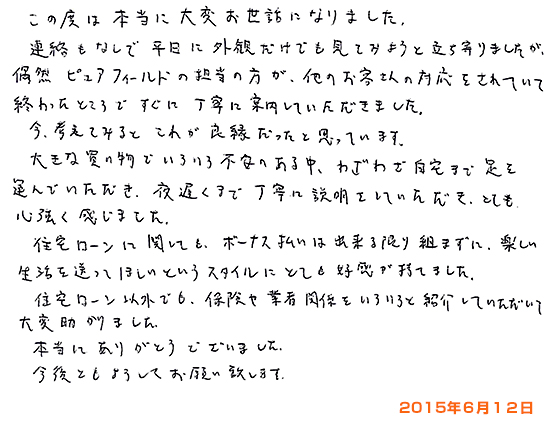 この度は本当に大変お世話になりました。
連絡もなしで平日に外観だけでも見てみようと立ち寄りましたが、
偶然ピュアフィールドの担当の方が、他のお客さんの対応をされていて
終わったところですぐに丁寧に案内していただきました。
今、考えてみるとこれが良縁だったと思っています。
大きな買い物でいろいろ不安のある中、わざわざ自宅まで足を
運んでいただき、夜遅くまで丁寧に説明をしていただき、とても
心強く感じました。
住宅ローンに関しても、ボーナス払いは出来る限り組まずに、楽しい
生活を送ってほしいというスタイルにとても好感が持てました。
住宅ローン以外でも、保険や業者関係をいろいろと紹介していただいて
大変助かりました。
本当にありがとうございました。
今後ともよろしくお願い致します。
2015年6月12日